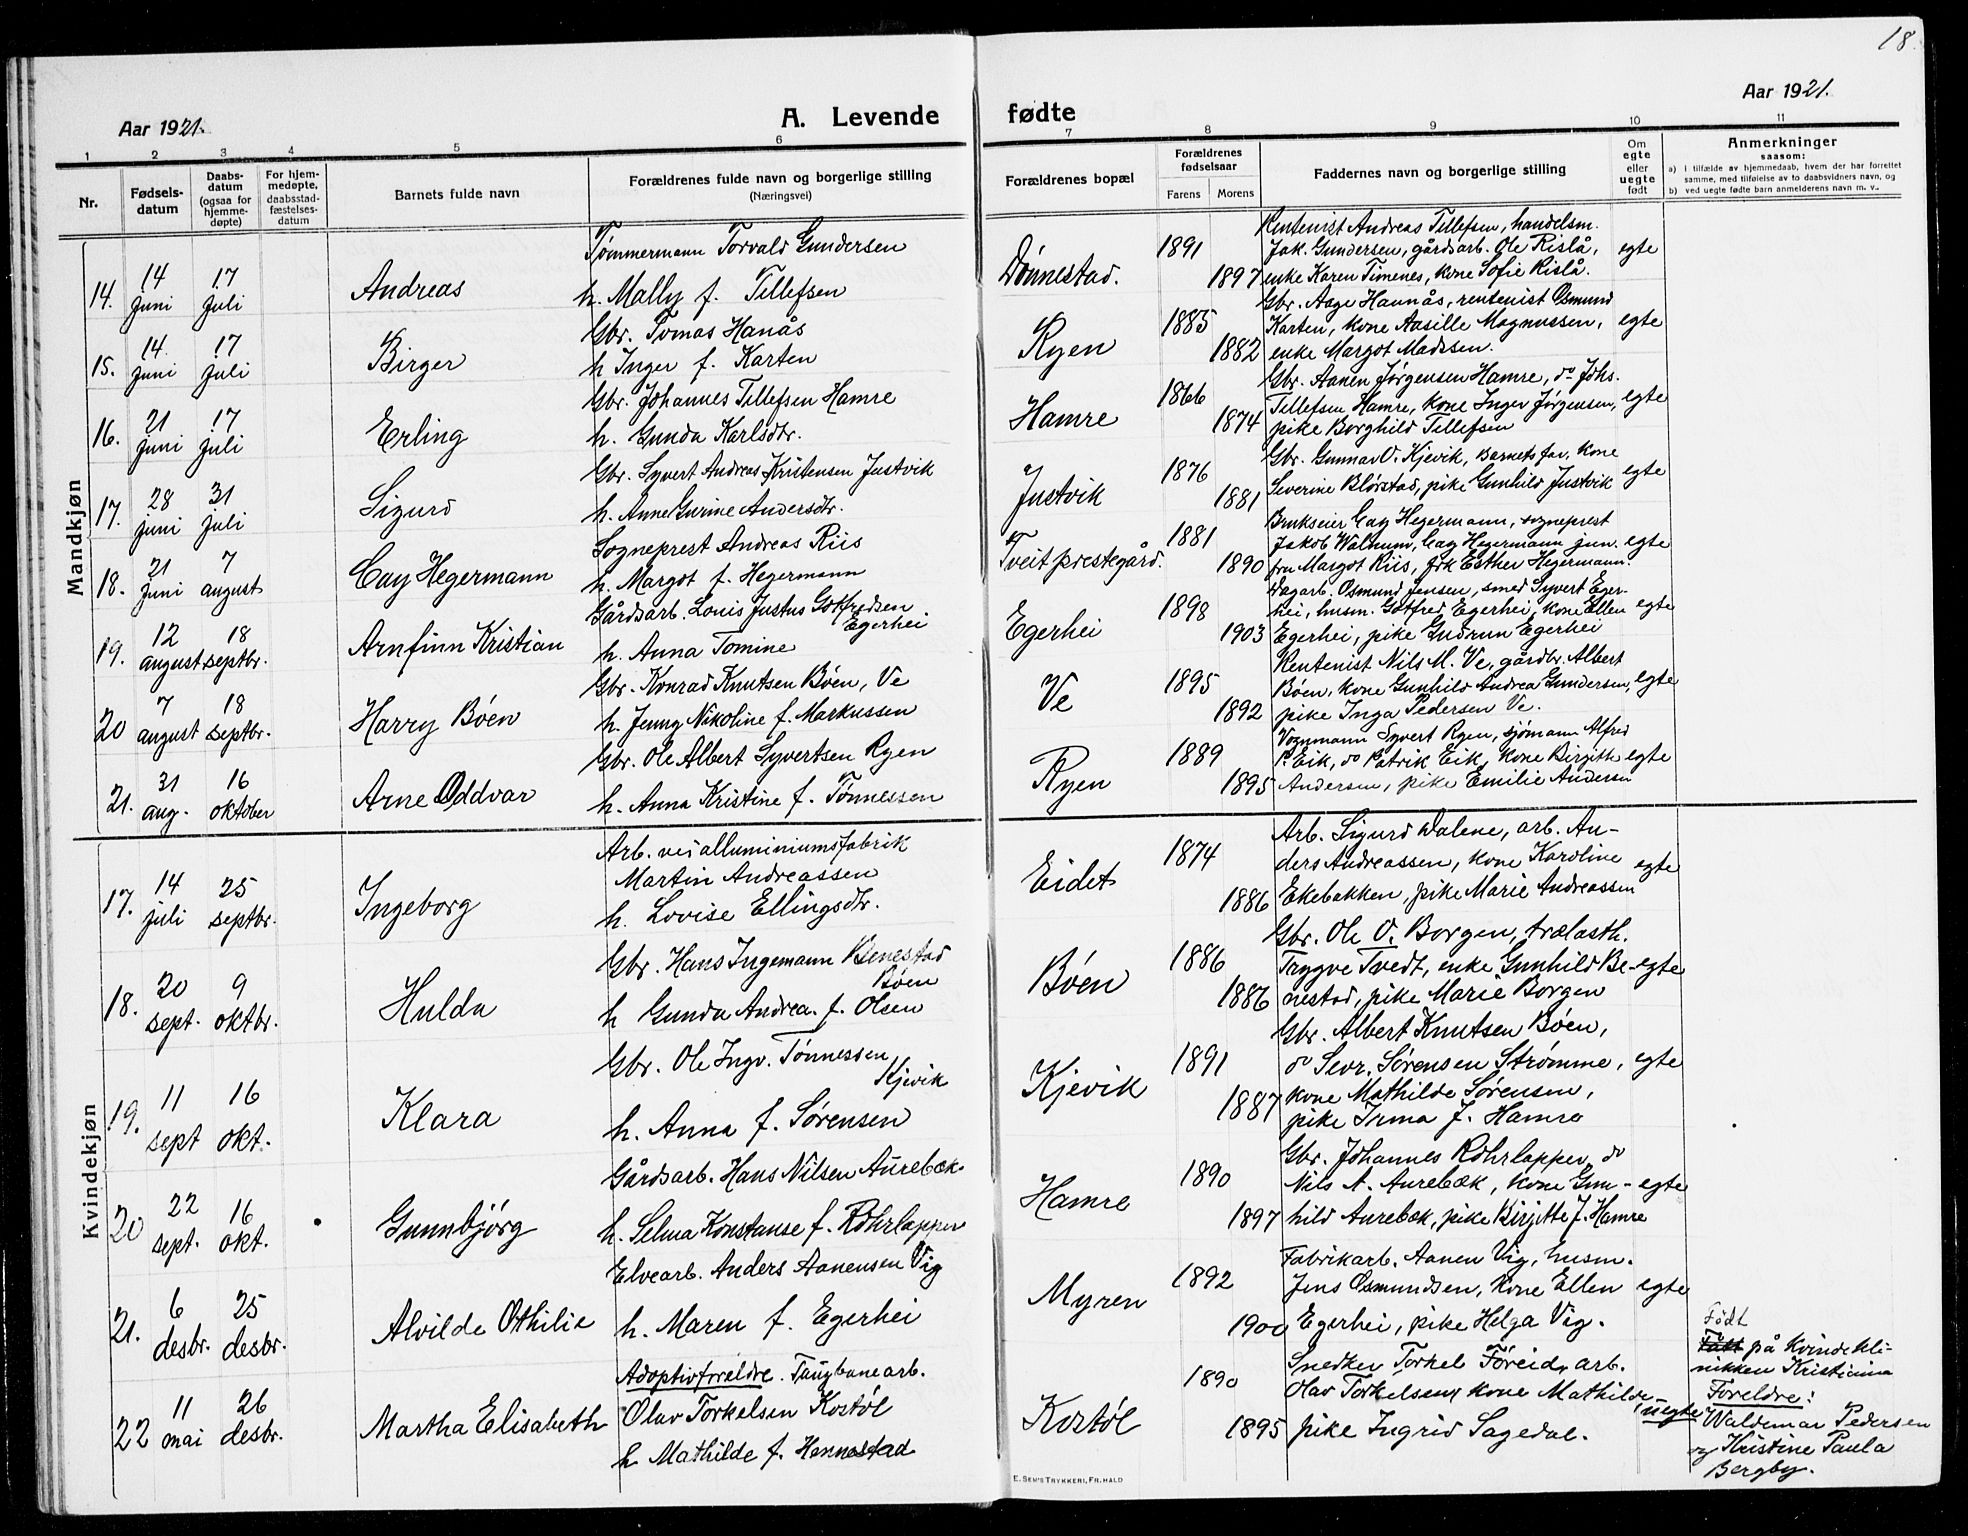 18
Aar 1921.
A. Levende
fødte
Aar 1921.
1
2
3
4
5
6
7
8
9
10
11
Nr.
Fødsels-
datum
Daabs-
datum
(ogsaa for
hjemme-
døpte)
For hjem-
medøpte,
daabsstad-
fæstelses-
datum
Barnets fulde navn
Forældrenes fulde navn og borgerlige stilling
(Næringsvei)
Forældrenes bopæl
Forældrenes
fødselsaar
Farens
Morens
Faddernes navn og borgerlige stilling
Om
egte
eller
uegte
født
Anmerkninger
saasom:
a) I tilfælde av hjemmedaab, hvem der har forrettet
samme, med tilføielse av to daabsvidners navn, og
b) ved uegte fødte barn anmelderens navn m. v.
Mandkjøn
14.
14 juni
17 juli
Andreas
Tømmermann Torvald Gundersen
h. Mally f. Tillefsen
Dønnestad.
1891
1897
Rentenist Andreas Tillefsen, handelsm.
Jak. Gundersen, gårdsarb. Ole Rislå,
enke Karen Timenes, kone Sofie Rislå.
egte
15.
14. juni
17 juli
Birger
Gbr. Tomas Hanås
h Inger f. Karten
Ryen
1885
1882
Gbr. Aage Haunås, rentenist Osmund
Karten, kone Aasille Magnussen,
enke Margot Madssen.
egte
16.
21 juni
17 juli
Erling
Gbr. Johannes Tillefsen Hamre
h. Gunda Karlsdtr.
Hamre
1866
1874
Gbr. Aanen Jørgensen Hamre, do Johs.
Tillefsen Hamre, kone Inger Jørgensen,
pike Borghild Tillefsen
egte
17.
28 juni
31 juli
Sigurd
Gbr. Syvert Andreas Kristensen Justvik
h. Anne Gurine Andersdtr.
Justvik
1876
1881
Gbr. Gunnar O. Kjevik, barnets far, kone
Severine Blørstad, pike Gunhild Justvik
egte
18.
21 juni
7 august
Cay Hegermann
Sogneprest Andreas Riis
h. Margot f. Hegermann
Tveit prestegård.
1881
1890
Brukseier Cay Hegermann, sogneprest
Jakob Walnum, Cay Hegermann jun.
fru Margot Riis, frk Esther Hegermann.
egte
19.
12 august
18 septbr.
Arnfinn Kristian
Gårdsarb. Louis Justus Gotfredsen
Egerhei
h. Anna Tomine
Egerhei
1898
1903
Dagarb. Osmund Jensen, smed Syvert Eger-
hei, husm. Gotfred Egerhei, kone Ellen
Egerhei, pike Gudrun Egerhei
egte
20
7 august
18 septbr.
Harry Bøen
Gbr. Konrad Knutsen Bøen, Ve
h. Jenny Nikoline f. Markussen
Ve
1895
1892
Rentenist Nils M. Ve, gårdbr. Albert
Bøen, kone Gunhild Andrea Gundersen,
pike Inga Pedersen Ve.
egte
21.
31 aug.
16 oktober
Arne Oddvar
Gbr. Ole Albert Syvertsen Ryen
h. Anna Kristine f. Tønnessen
Ryen
1889
1895
Vognmann Syvert Ryen, sjømann Alfred
P. Eik, do Patrik Eik, kone Birgith
Andersen, pike Emilie Andersen
egte
Kvindekjøn
17.
14 juli
25 septbr.
Ingeborg
Arb. ved alluminiumsfabrik
Martin Andreassen
h. Lovise Ellingsdtr.
Eidet
1874
1886
Arb. Sigurd Dalene, arb. An-
ders Andreassen, kone Karoline
Ekebakken, pike Marie Andreassen
egte
18.
20 sept.
9 oktbr.
Hulda
Gbr. Hans Ingemann Benestad
Bøen
h Gunda Andrea. f. Olsen
Bøen
1886
1886
Gbr. Ole O. Borgen, trælasth.
Trygve Tvedt, enke Gunhild Be-
nestad, pike Marie Borgen
egte
19.
11 sept
16 okt.
Klara
Gbr. Ole Ingv. Tønnessen
Kjevik
h. Anna f. Sørensen
Kjevik
1891
1887
Gbr. Albert Knutsen Bøen,
do Sevr. Sørensen Strømme,
kone Mathilde Sørensen,
pike Irma J. Hamre
egte
20
22 sept.
16 okt.
Gunnbjørg
Gårdsarb. Hans Nilsen Aurebæk.
h. Selma Konstanse f. Rohrlapper
Hamre
1890
1897
Gbr. Johannes Rohrlapper, do
Nils A. Aurebæk, kone Gun-
hild Aurebæk, pike Birgitte J. Hamre
egte
21.
6 desbr.
25 desbr.
Alvilde Othilie
Elvearb. Anders Aanensen Vig
h. Maren f. Egerhei
Myren
1892
1900
Fabrikarb. Aanen Vig, husm.
Jens Osmundsen, kone Ellen
Egerhei, pike Helga Vig.
egte
22
11 mai
26 desbr.
Martha Elisabeth
Adoptivforeldre. Taugbanearb.
Olav Torkelsen Kostøl
h Mathilde f. Hennestad
Kostøl
1890
1895
Snedker Torkel Föreid, arb.
Olav Torkelsen, kone Mathilde
pike Ingrid Sagedal.
uegte
Født
på kvindekli-
nikken Kristiania
Foreldre:
Waldemar Pedersen
og Kristine Paula
Bergby.
E. Sem's Trykkeri, Fr.hald